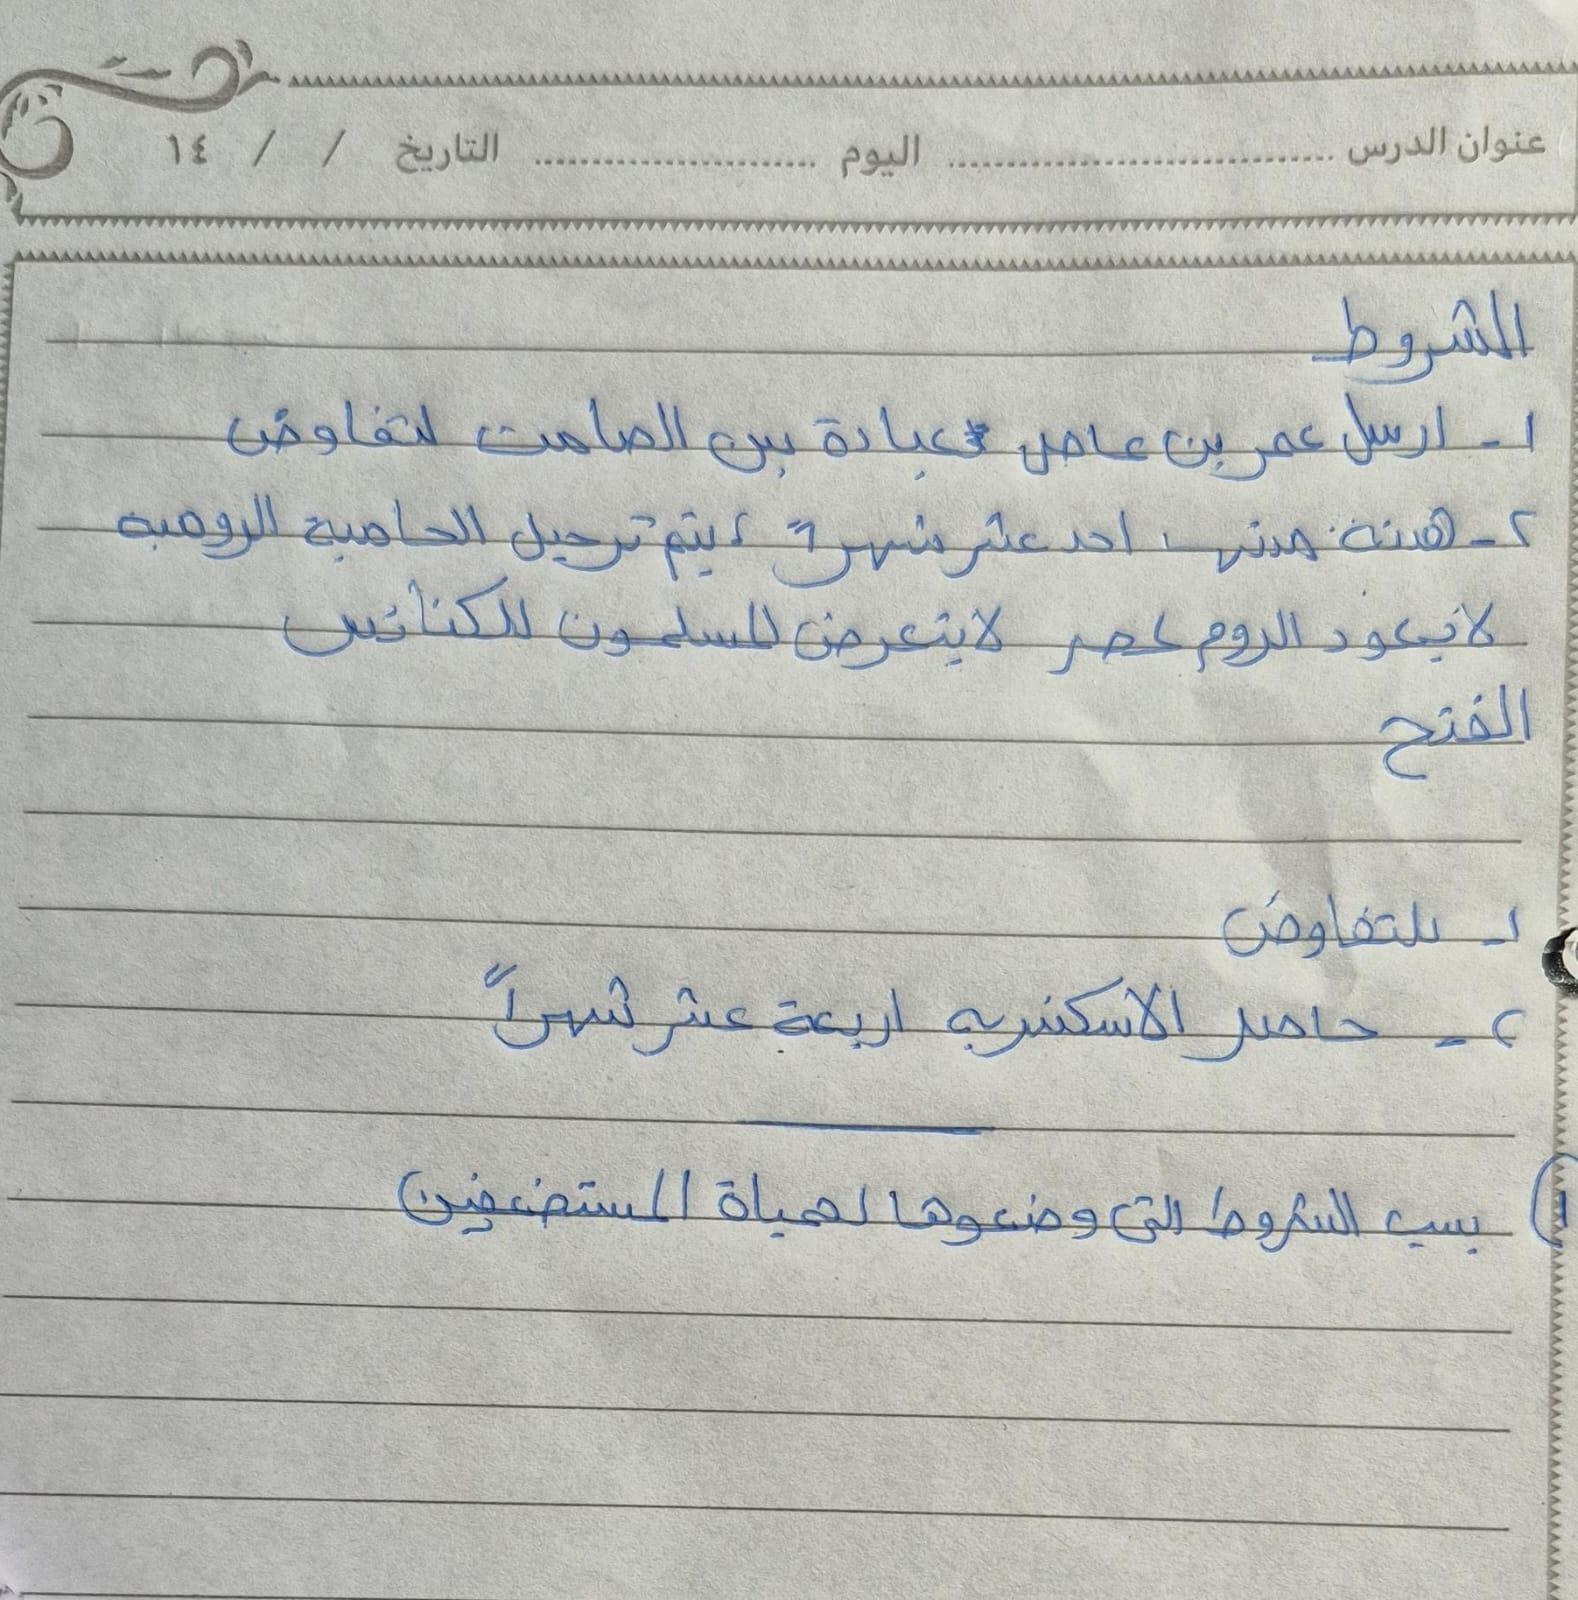 عنوان الدرس ........................ اليوم ................ التاريخ / / ١٤
الشروط
١- ارسل عمر بن عاص عبادة بين الصامت لتفاوض
٢- هدنة مدتها احد عشر شهراً، يتم ترحيل الحامية الرومية
لا يعود الروم لمصر لا يتعرض المسلمون للكنائس
الفتح
١- للتفاوض
٢- حاصر الاسكندريه اربعة عشر شهراً
١) بسب الشروط التي وضعوها لحماية المستضعفين